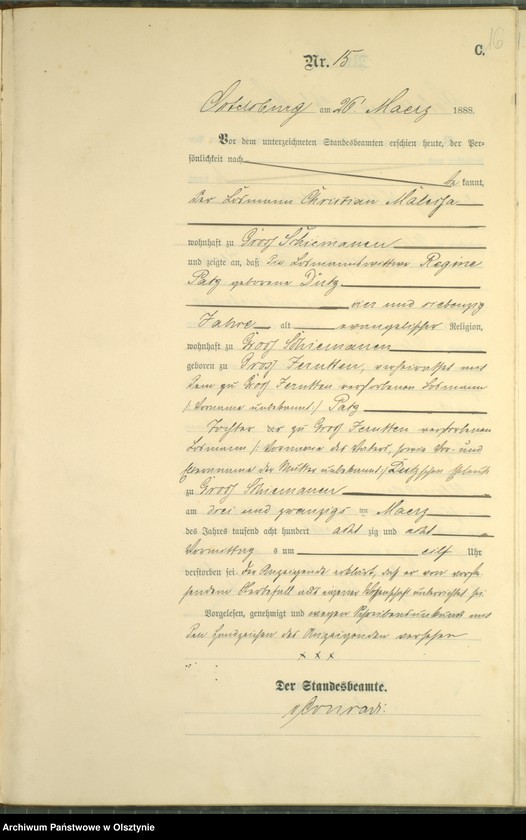 16
C.
Nr. 15
Ortelsburg am 26. Maerz 1888.
Vor dem unterzeichneten Standesbeamten erschien heute, der Per-
sönlichkeit nach
be kannt,
der Losmann Christian Malessa
wohnhaft zu Groß Schiemanen
und zeigte an, daß die Losmannswittwe Regine
Patz geborene Dutz
vier und siebenzig
Jahre alt evangelischer Religion,
wohnhaft zu Groß Schiemanen
geboren zu Groß Jerutten, verheirathet mit
dem zu Groß Jerutten verstorbenen Losmann
/: Vorname unbekannt :/ Patz
Tochter der zu Groß Jerutten verstorbenen
Losmann /: Vorname des Vaters, sowie Vor- und
der Mutter unbekannt :/ Dutz'schen Eheleute
zu Groß Schiemanen
am drei und zwanzigs ten Maerz
des Jahres tausend acht hundert acht zig und acht
Vormittag s um elf Uhr
verstorben sei. Der Anzeigende erklärt, daß er von vorste-
hendem Sterbefall aus eigener Wissenschaft unterrichtet sei.
Vorgelesen, genehmigt und wegen Schreibensunkunde mit
den Handzeichen des Anzeigenden versehen
x x x
Der Standesbeamte.
Conradi
Archiwum Państwowe w Olsztynie